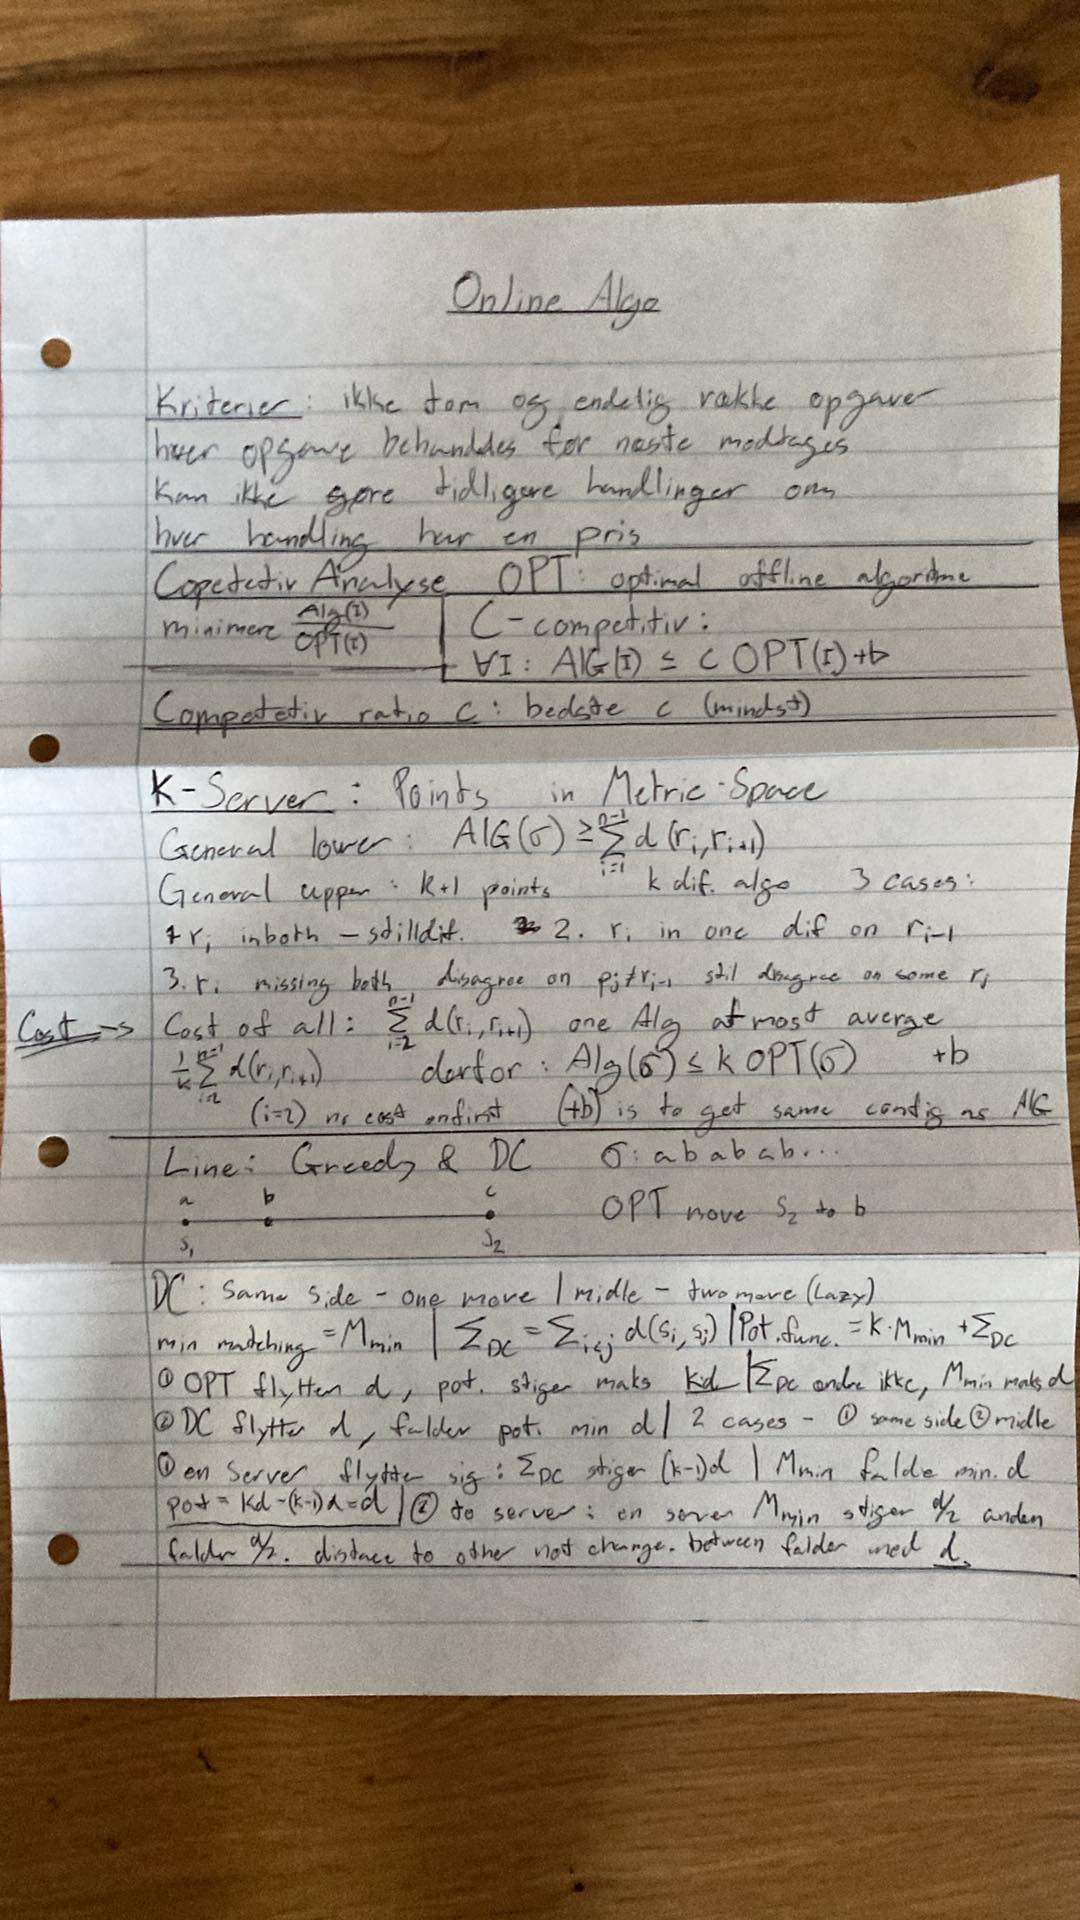 Online Algo
Kriterier: ikke tom og endelig række opgaver
hver opgave behandles før næste modtages
Kan ikke gøre tidligere handlinger om
hver handling har en pris
Copetetiv Analyse OPT: optimal offline algoritme
minimere Alg(I)/OPT(I) C-competitiv:
∀I: AlG(I) ≤ C OPT(I)+b
Competetiv ratio C: bedste c (mindst)
K-Server: Points in Metric-Space
General lower: AlG(σ) ≥ ∑_{i=1}^{n-1} d(r_i, r_{i+1})
General upper: k+1 points k dif. algo 3 cases:
1 r_i in both - still dif. 2. r_i in one dif on r_{i-1}
3. r_i missing both disagree on p_j≠r_{i-1} stil disagree on some r_j
Cost → Cost of all: ∑_{i=2}^{n-1} d(r_i, r_{i+1}) one Alg at most averge
1/k ∑_{i=2}^{n-1} d(r_i, r_{i+1}) derfor: Alg(σ) ≤ k OPT(σ) +b
(i=2) no cost on first (+b) is to get same config as AlG
Line: Greedy & DC σ: a b a b a b...
a b c OPT move S_2 to b
S_1 S_2
DC: Same side - one move | midle - two move (Lazy)
min matching = M_min | ∑_DC = ∑_{i<j} d(s_i, s_j) | Pot. func. = k·M_min + ∑_DC
① OPT flytter d, pot. stiger maks kd | ∑_DC ændre ikke, M_min maks d
② DC flytter d, falder pot. min d | 2 cases - ① same side ② midle
① en server flytter sig: ∑_DC stiger (k-1)d | M_min falde min. d
pot = kd-(k-1)d=d | ② to server: en server M_min stiger d/2 anden
falder d/2. distace to other not change. between falder med d.